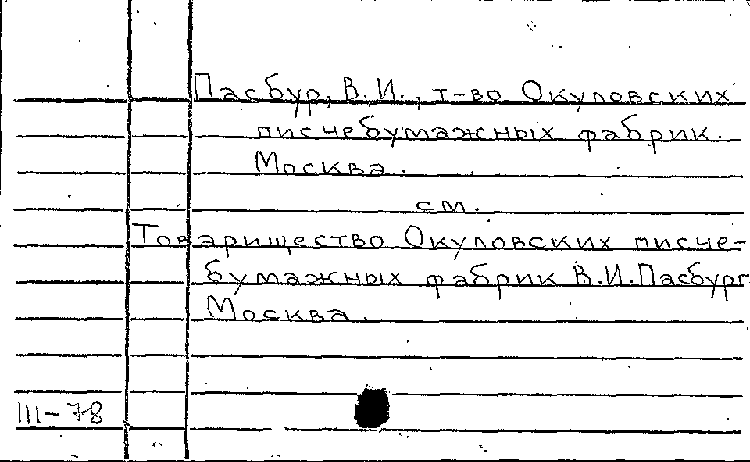 Пасбур, В.И., т-во Окуловских
писчебумажных фабрик.
Москва.
см.
Товарищество Окуловских писче-
бумажных фабрик В.И.Пасбург
Москва.
III-78